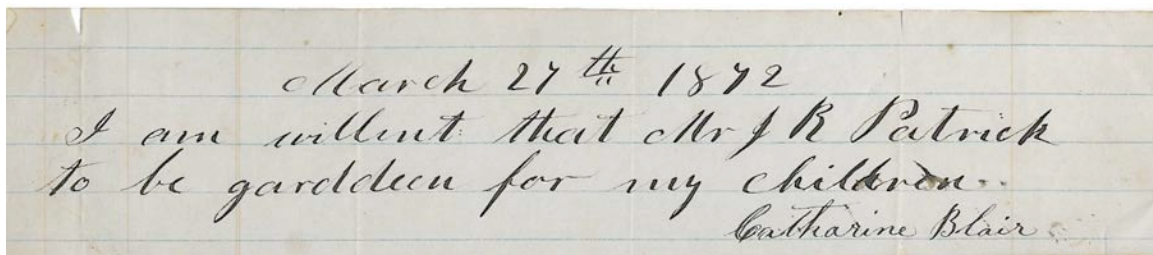 March 27th 1872
I am willent that Mr J R Patrick
to be garddeen for my children
Catharine Blair